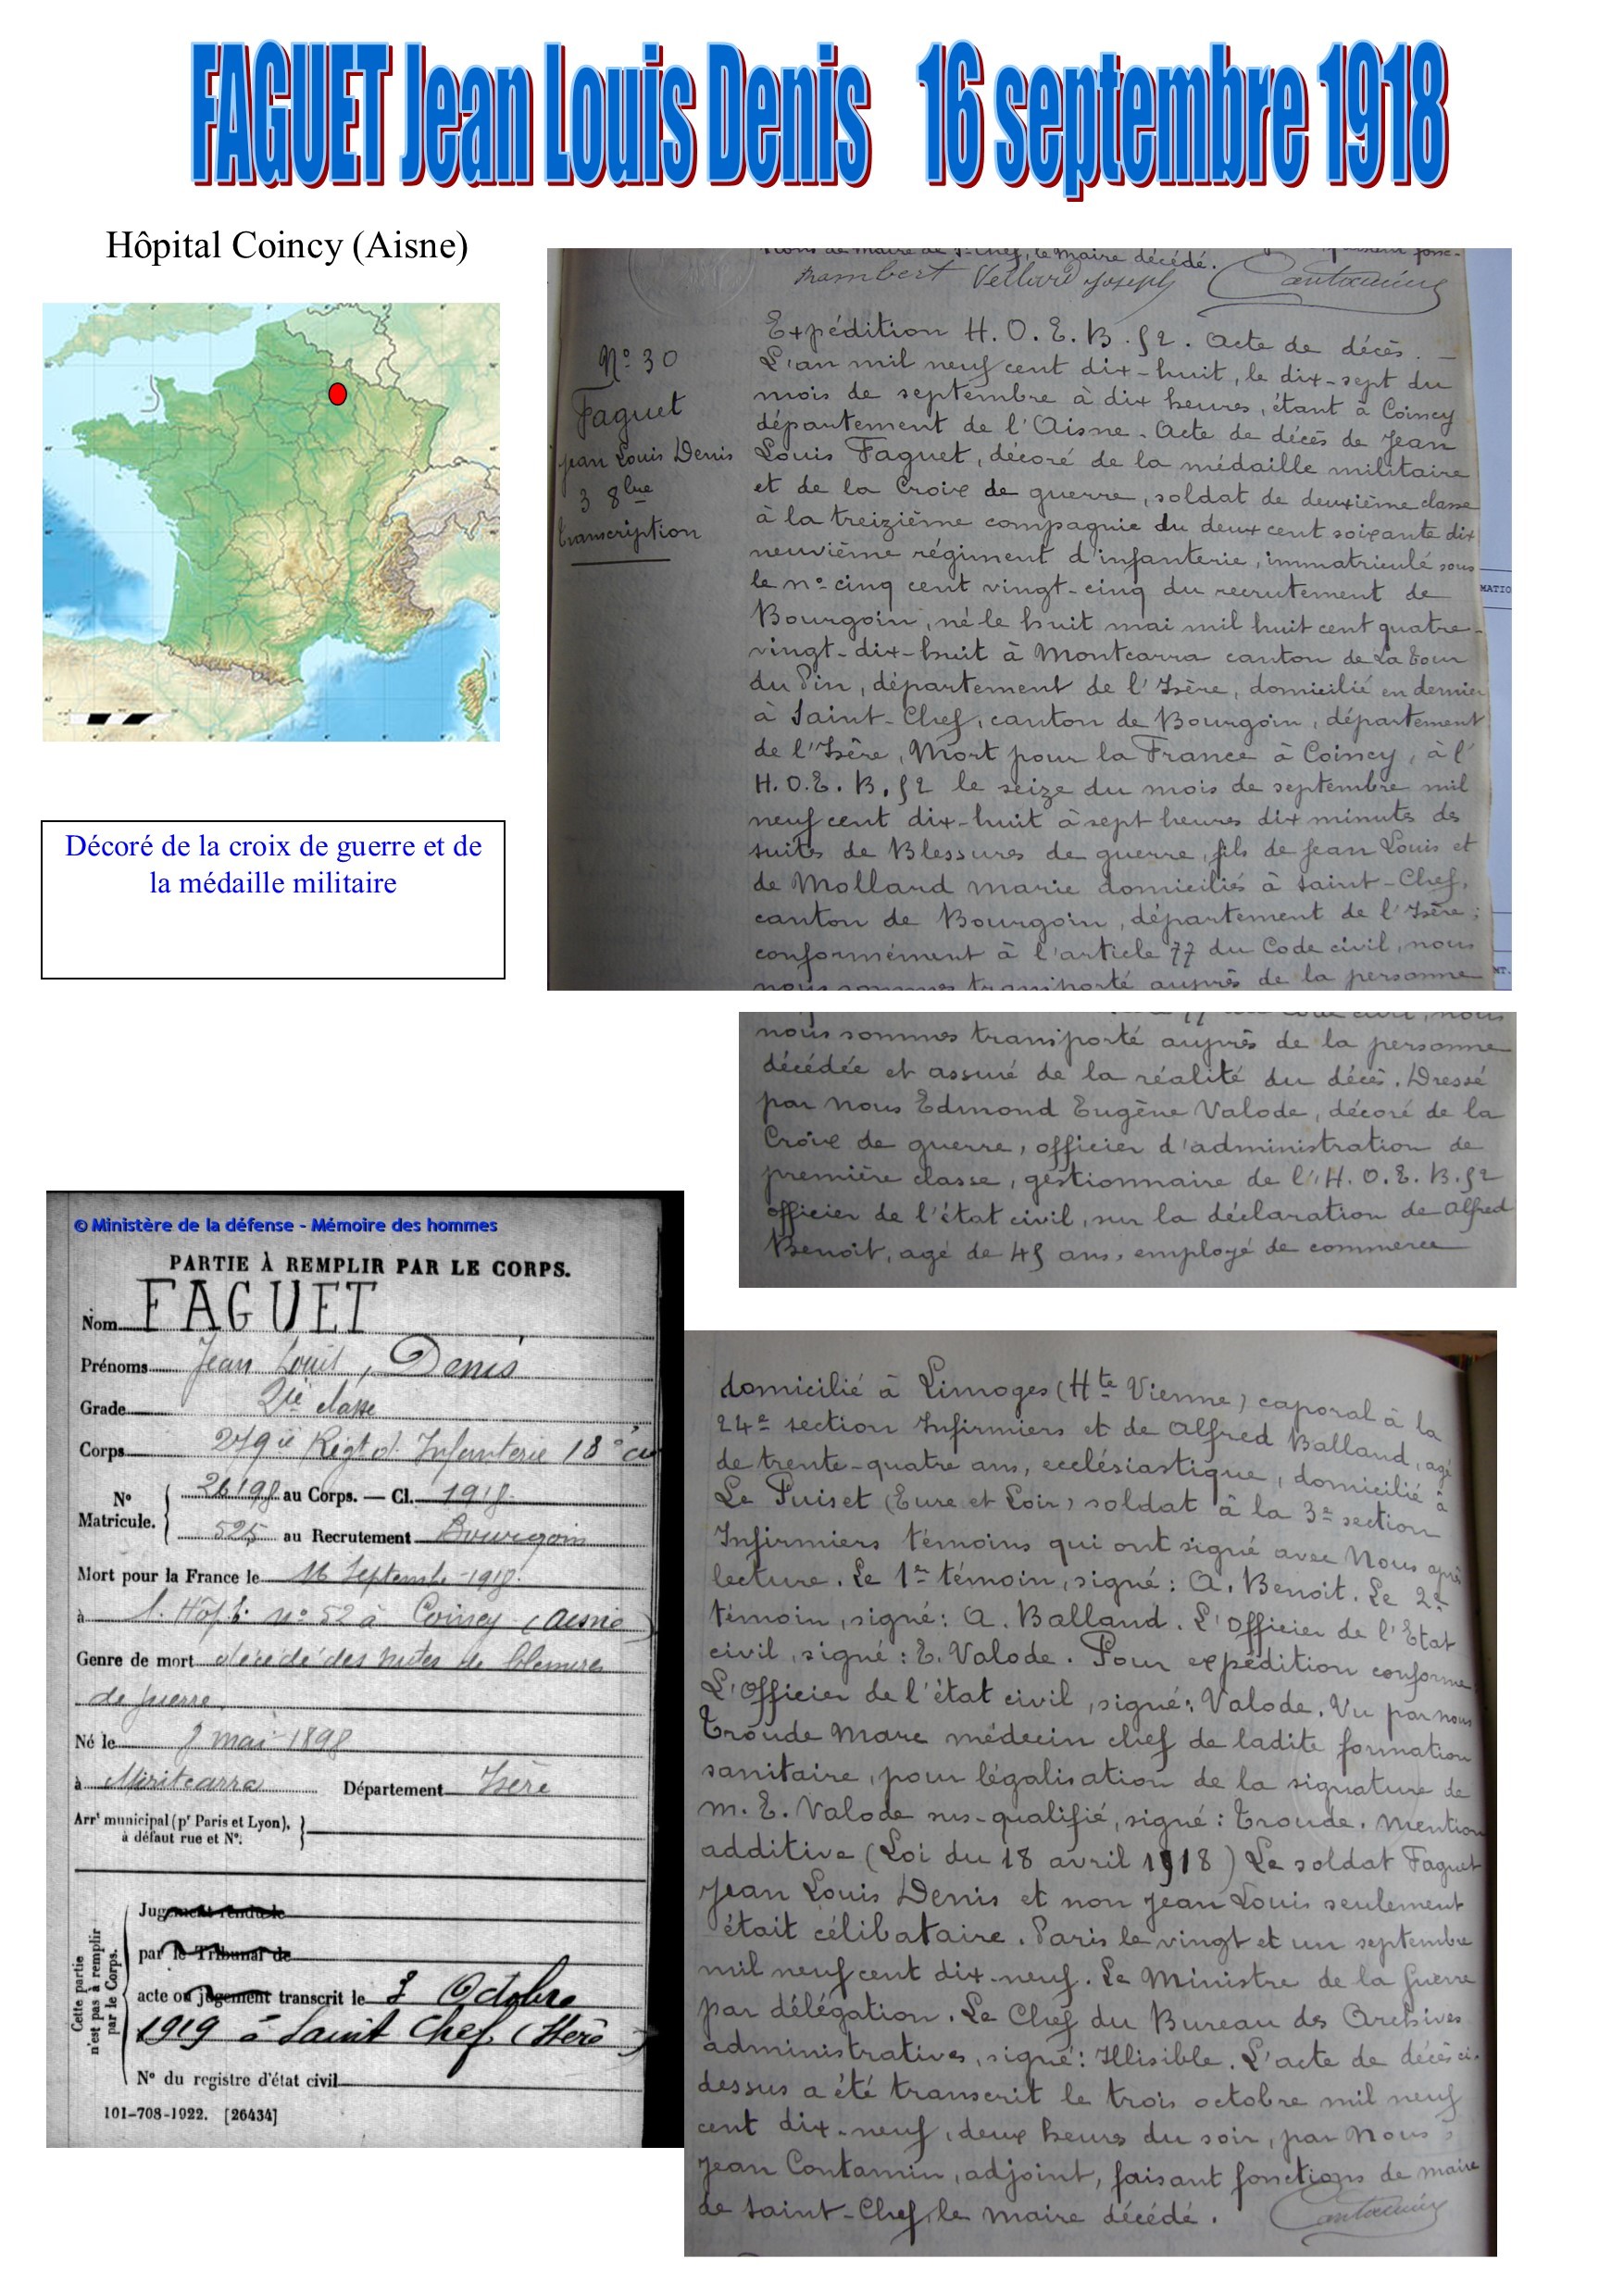 FAGUET Jean Louis Denis 16 septembre 1918
Hôpital Coincy (Aisne)
Décoré de la croix de guerre et de
la médaille militaire
tions de maire de St-Chef, le maire décédé.
Vellard Joseph Contamin
N° 30
Faguet
Jean Louis Denis
3 8bre
transcription
Expédition H. O. E. B. 52. Acte de décès. —
L'an mil neuf cent dix-huit, le dix-sept du
mois de septembre à dix heures, étant à Coincy
département de l'Aisne. Acte de décès de Jean
Louis Faguet, décoré de la médaille militaire
et de la Croix de guerre, soldat de deuxième classe
à la treizième compagnie du deux cent soixante dix
neuvième régiment d'infanterie, immatriculé sous
le n° cinq cent vingt-cinq du recrutement de
Bourgoin, né le huit mai mil huit cent quatre-
vingt-dix-huit à Montcarra canton de La Tour
du Pin, département de l'Isère, domicilié en dernier
à Saint-Chef, canton de Bourgoin, département
de l'Isère, Mort pour la France à Coincy, à l'
H. O. E. B. 52 le seize du mois de septembre mil
neuf cent dix-huit à sept heures dix minutes des
suites de Blessures de guerre, fils de Jean Louis et
de Mollard marie domiciliés à saint-Chef,
canton de Bourgoin, département de l'Isère ;
conformément à l'article 77 du Code civil, nous
nous sommes transporté auprès de la personne
nous sommes transporté auprès de la personne
décédée et assuré de la réalité du décès. Dressé
par nous Edmond Eugène Valode, décoré de la
Croix de guerre, officier d'administration de
première classe, gestionnaire de l'H. O. E. B. 52
officier de l'état civil, sur la déclaration de Alfred
Benoit, agé de 45 ans, employé de commerce
domicilié à Limoges (Hte Vienne) caporal à la
24e section Infirmiers et de Alfred Balland, agé
de trente-quatre ans, ecclésiastique, domicilié à
Le Puiset (Eure et Loir) soldat à la 3e section
Infirmiers témoins qui ont signé avec Nous après
lecture. Le 1er témoin, signé : A. Benoit. Le 2e
témoin, signé : A. Balland. L'Officier de l'Etat
civil, signé : E. Valode. Pour expédition conforme
L'Officier de l'état civil, signé : Valode. Vu par nous
Troude Marc médecin chef de ladite formation
sanitaire, pour légalisation de la signature de
M. E. Valode sus-qualifié, signé : Troude. Mention
additive (Loi du 18 avril 1918) Le soldat Faguet
Jean Louis Denis et non Jean Louis seulement
était célibataire. Paris le vingt et un septembre
mil neuf cent dix-neuf. Le Ministre de la Guerre
par délégation. Le Chef du Bureau des Archives
administratives, signé : Illisible. L'acte de décès ci-
dessus a été transcrit le trois octobre mil neuf
cent dix-neuf, deux heures du soir, par Nous
Jean Contamin, adjoint, faisant fonctions de maire
de saint-Chef, le maire décédé. Contamin
© Ministère de la défense - Mémoire des hommes
PARTIE À REMPLIR PAR LE CORPS.
Nom FAGUET
Prénoms Jean Louis, Denis
Grade 2ie classe
Corps 279ie Régt d'Infanterie 18° Cie
N° Matricule. 26198 au Corps. — Cl. 1918
525 au Recrutement Bourgoin
Mort pour la France le 16 Septembre 1918.
à l. Hôp. n° 52 à Coincy (Aisne)
Genre de mort décédé des suites de blessures
de guerre
Né le 8 mai 1898
à Montcarra Département Isère
Arrt municipal (pr Paris et Lyon),
à défaut rue et N°.
Cette partie
n'est pas à remplir
par le Corps.
Jugement rendu le
par le Tribunal de
acte ou jugement transcrit le 3 Octobre
1919 à Saint Chef (Isère)
N° du registre d'état civil
101-708-1922. [26434]